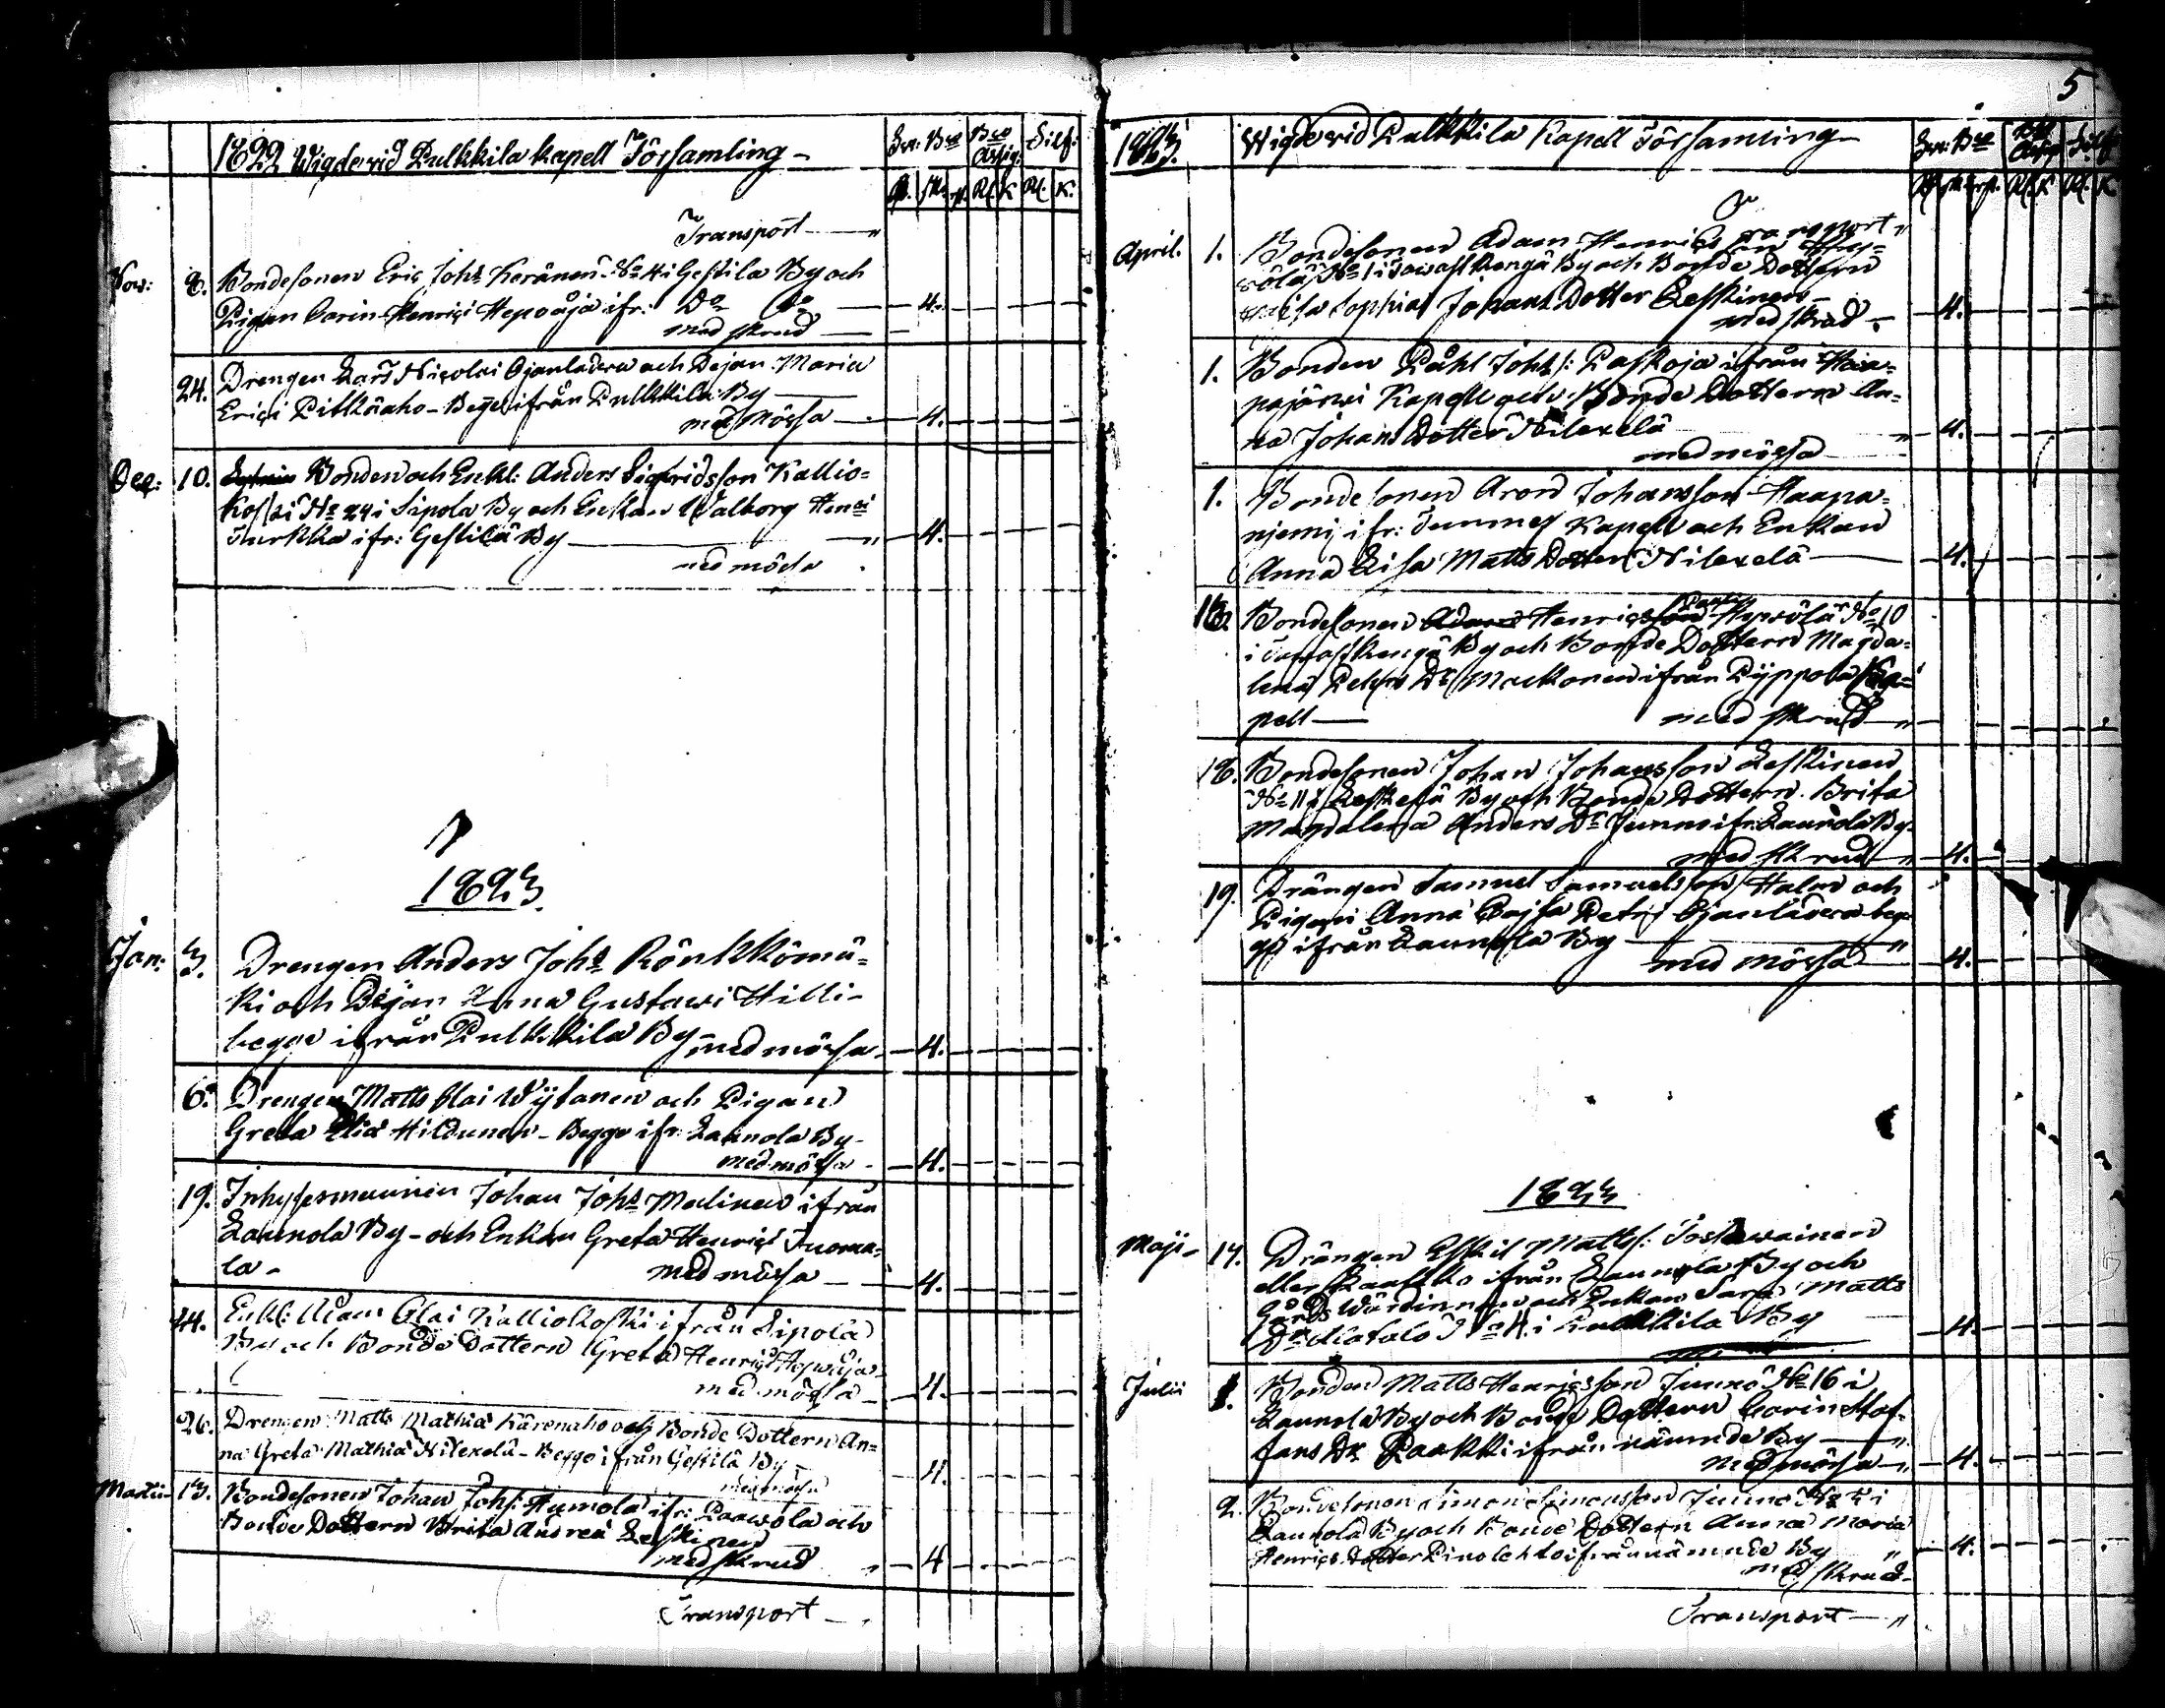 1822 Wigde wid Pulkkila Kapell Församling
Transport
Nov: 8. Bondesonen Eric Johs Keränen No 4 i Gestila By och
Pigan Carin Henrici Hepoåja ifr: Do Do 4.
med skrud
24. Drengen Lars Nicolai Ojanladera och Pejan Maria
Erici Pitkäaho - Begge ifrån Pulkkila By
med mössa 4.
Dec: 10. Bonden och Enkl: Anders Sigfridsson Kallio=
koski No 24 i Sipola By och Enkan Walborg Henrici
Turkka ifr: Gestilä By 4.
med mössa
1823
Jan: 3. Drengen Anders Johs Rönkkömä=
ki och Pijan Anna Gustawi Hilli-
begge ifrån Pulkkila By med mössa 4.
6. Drengen Matts Olai Wytanen och Pigan
Greta Eliæ Hildunen - Begge ifr: Laurola By-
med mössa 4.
19. Inhysesmannen Johan Johs Malinen ifrån
Laurola By - och Enkan Greta Henrici Tuoma=
la - med mössa 4.
24. Enkl: Olai Kalliokoski ifrån Sipola
By och Bonde Dottern Greta Henrici Hepoåja
med mössa 4.
26. Drengen Matts Mathiæ Kärenaho och Bonde Dottern An=
na Greta Mathiæ Nilexelä - Begge ifrån Gestilä By 4.
med mössa
Martii 13. Bondesonen Johan Johs: Humola ifr: Paawola och
Bonde Dottern Brita Andreæ Leskinen
med skrud 4
Transport
5
1823. Wigde wid Pulkkila Kapell Församling
Transport
April. 1. Bondesonen Adam Henricsson Hyw=
rölä No 1 i Jawastkengä By och Bonde Dottern
Sophia Johans Dotter Leskinen 4.
med skrud
1. Bonden Påhl Johs: Paskoja ifrån Haa=
pajärwi Kapell och Bonde Dottern An=
na Johans Dotter Nilexelä 4.
med mössa
1. Bondesonen Aron Johansson Haapa=
njemi ifr: Kapell och Enkan
Anna Lisa Matts Dotter Nilexelä 4.
Bondesonen Henricsson No 10
i Jawastkengä By och Bonde Dottern Magda=
lena Pehrs Dr Markonen ifrån Pyppola Ka=
pell med skrud
18. Bondesonen Johan Johansson Leskinen
No 11 Leskelä By och Bonde Dottern Brita
Magdalena Anders Dr Junno ifr: Laurola By
med skrud 4.
19. Drängen Samuel Samuelsson Halm och
Pigan Anna Cajsa Petri Ojanladera beg
ge ifrån Laurola By
med mössa 4.
1823
Maji 14. Drängen Eskil Matts: Toskawainen
eller Raasakko ifrån Laurola By och
Gårds Wärdinnan och Enkan Sara Matts
Dr No 4 i Pulkkila By 4.
Julii 1. Bonden Matts Henricsson Junno No 16 i
Laurola By och Bonde Dottern Carin Staf=
fans Dr Paakki ifrån nämnde By
med mössa 4.
2. Bondesonen Simon Simonsson Junno No i
Laurola By och Bonde Dottern Anna Maria
Henrics Dotter Pinolehto ifrån nämnde By 4.
med skrud
Transport